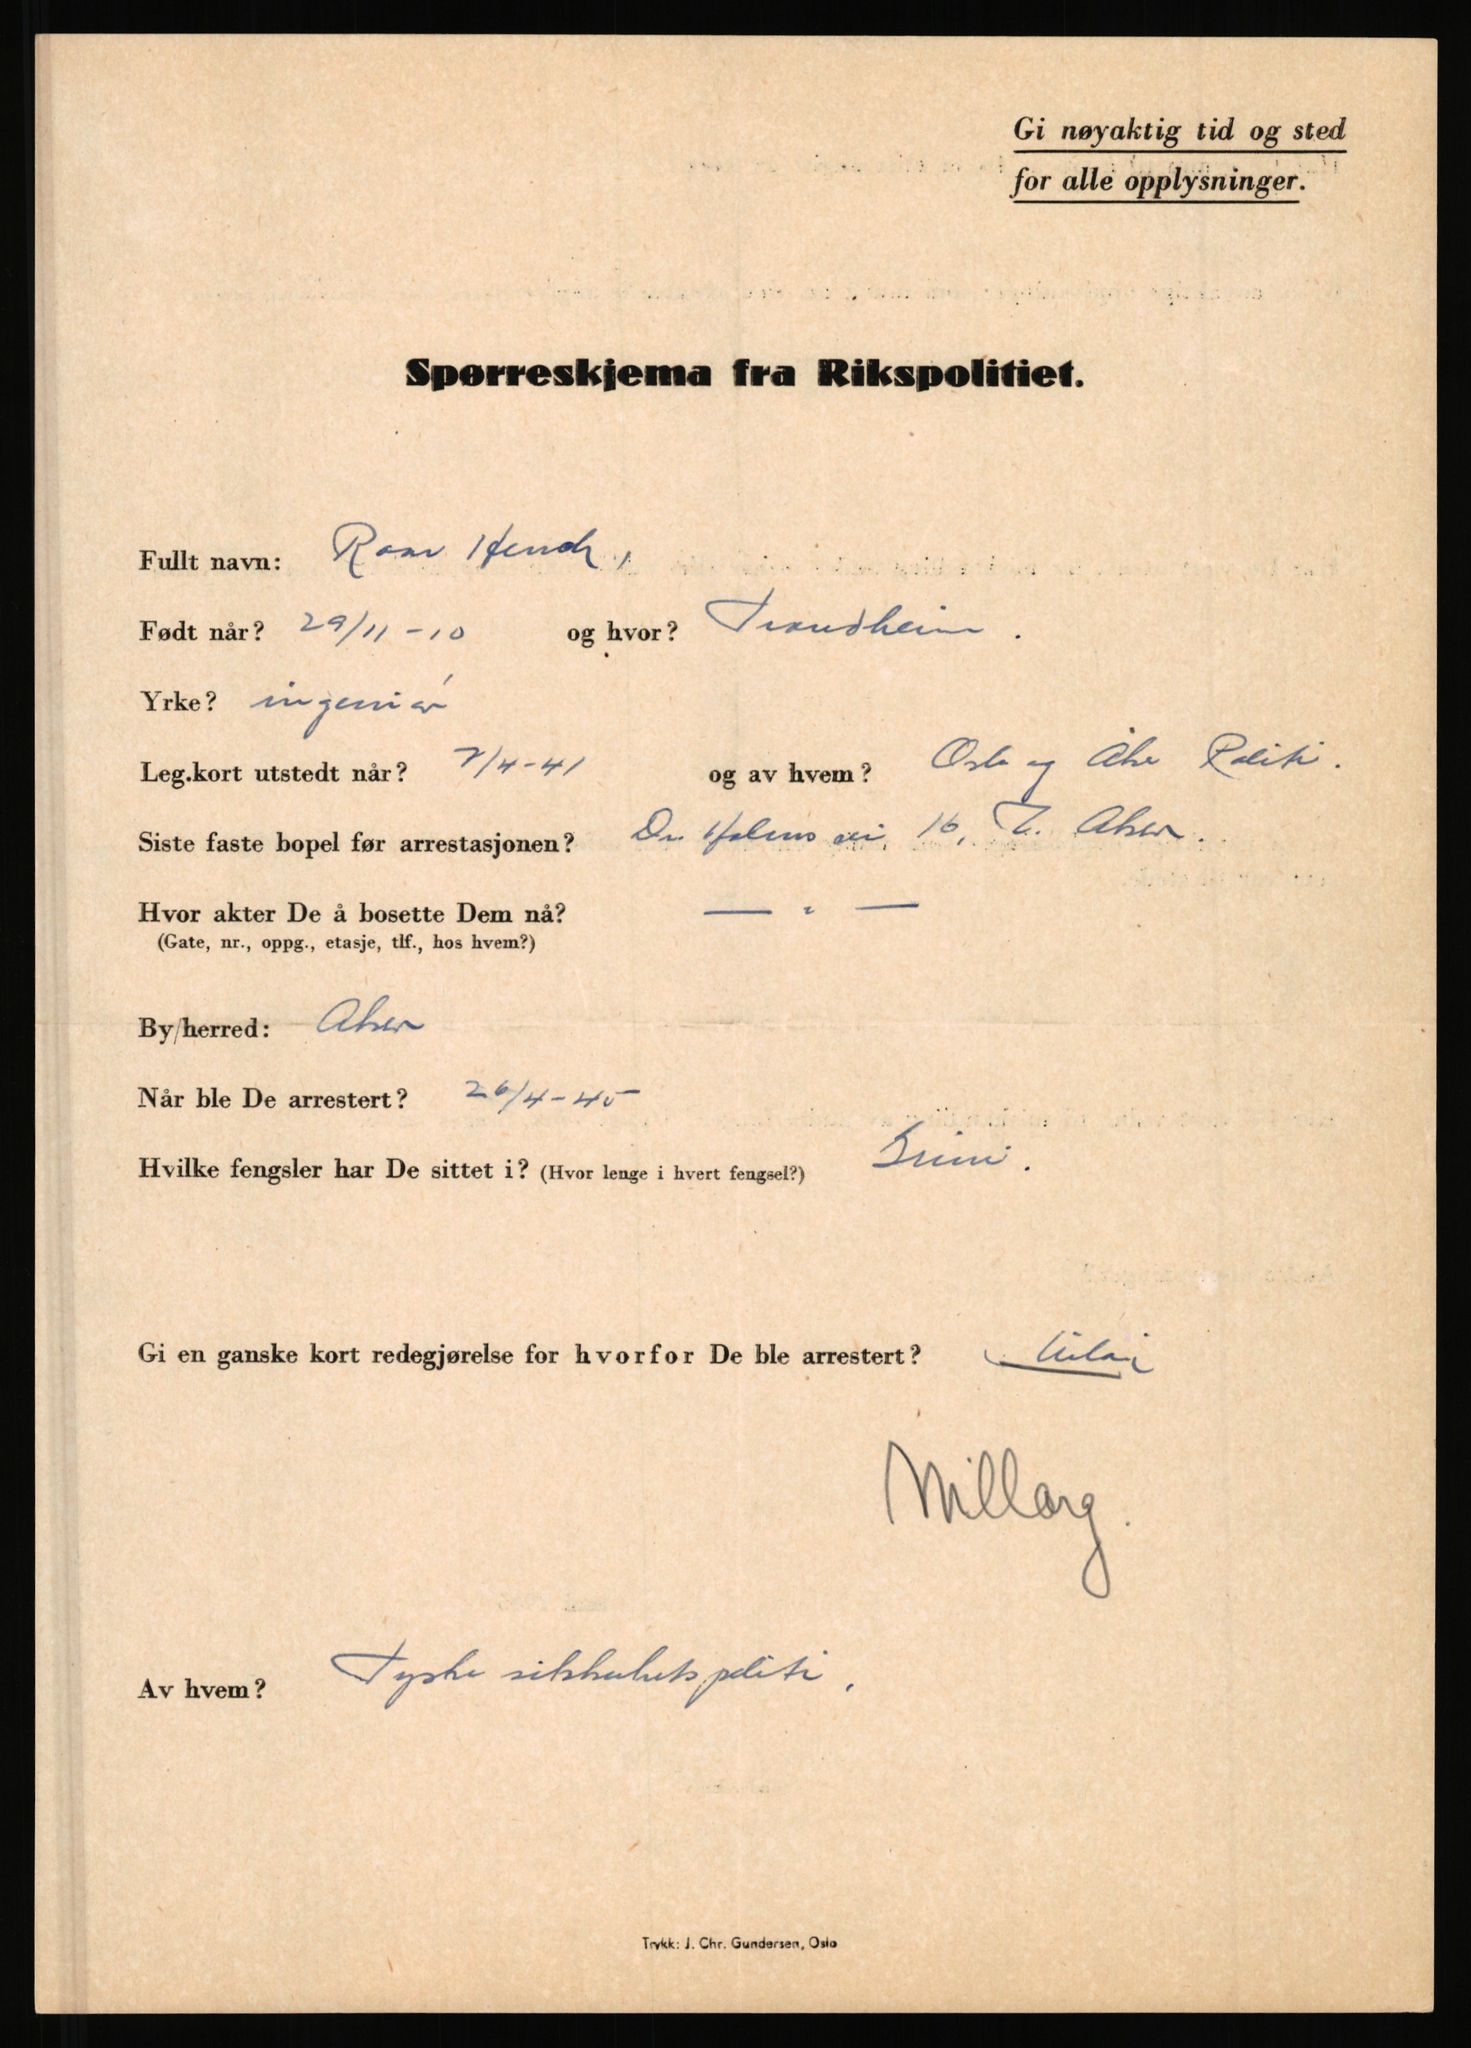 Gi nøyaktig tid og sted
for alle opplysninger.
Spørreskjema fra Rikspolitiet.
Fullt navn: Roar
Født når? 29/11-10 og hvor? Trondheim.
Yrke? ingeniør
Leg.kort utstedt når? 7/4-41 og av hvem? Oslo og Aker Politi.
Siste faste bopel før arrestasjonen? Dr. Holms vei 16, V. Aker.
Hvor akter De å bosette Dem nå? — " —
(Gate, nr., oppg., etasje, tlf., hos hvem?)
By/herred: Aker
Når ble De arrestert? 26/4-45
Hvilke fengsler har De sittet i? (Hvor lenge i hvert fengsel?) Grini.
Gi en ganske kort redegjørelse for hvorfor De ble arrestert?
Millorg.
Av hvem? Tyske sikkerhetspoliti.
Trykk: J. Chr. Gundersen, Oslo